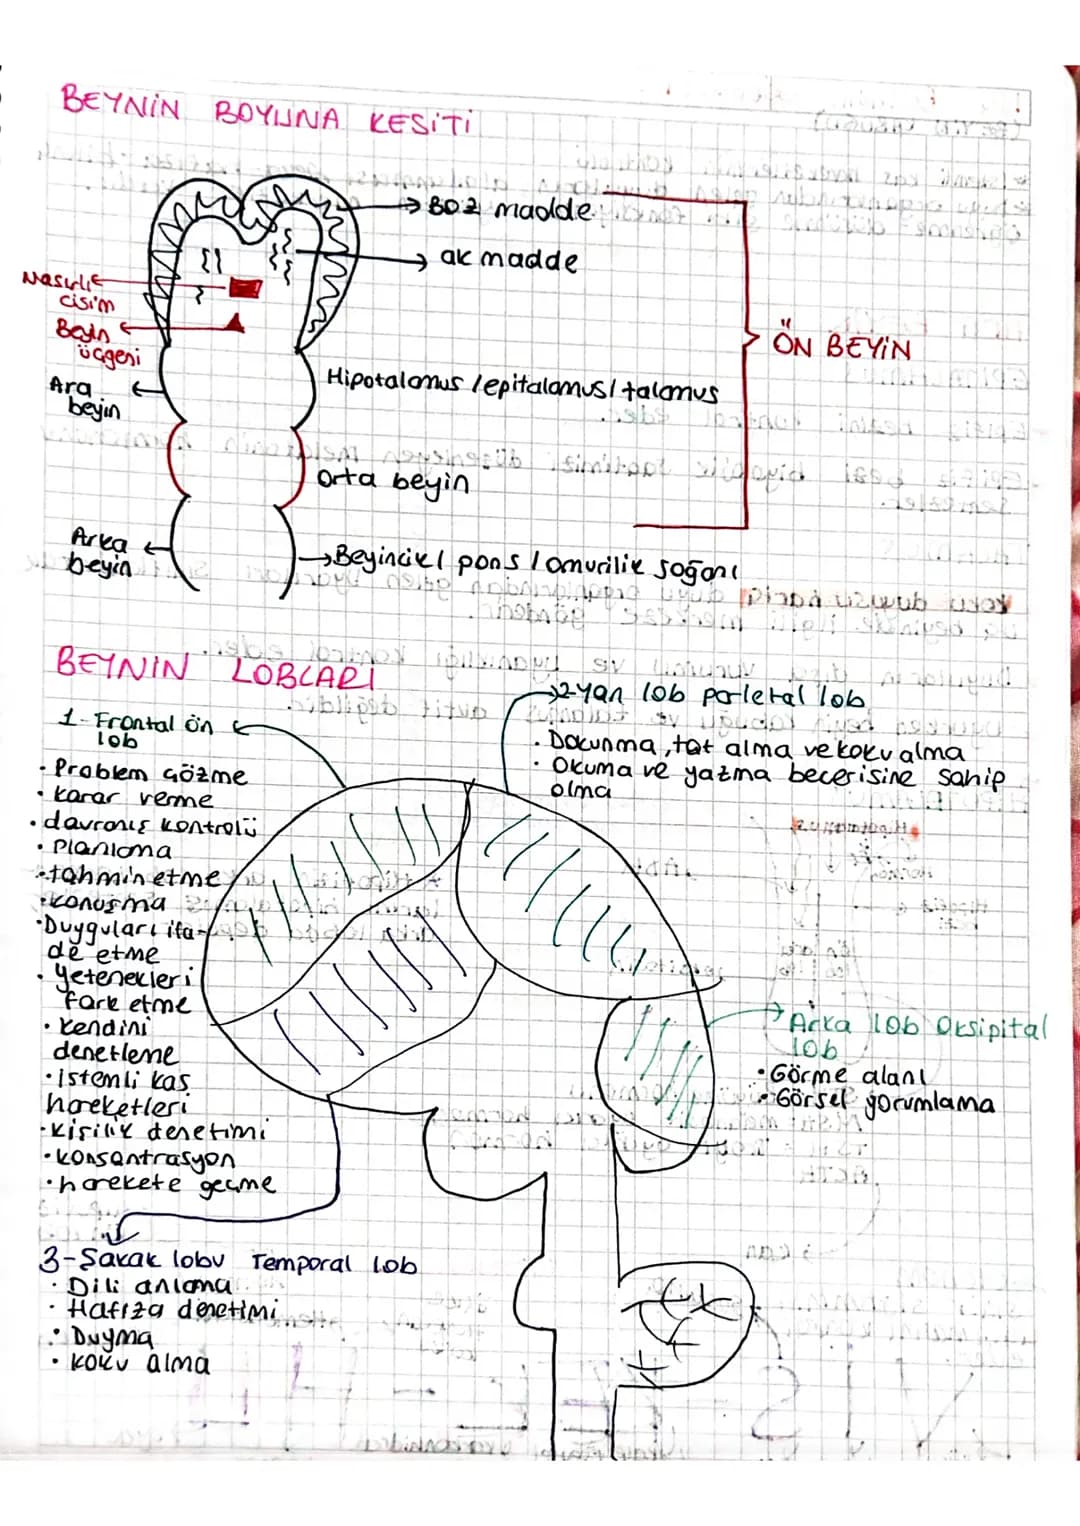 BEYNİN BOYUNA KESİTİ
Boz madde
ak madde
Nasırlı
cisim
Beyin
üçgeni
ÖN BEYİN
Ara
beyin
Hipotalamus / epitalamus / talamus
Orta beyin
Arka
beyin
Beyincik / pons / omurilik soğanı
BEYNİN LOBLARI
1- Frontal ön
lob
• Problem çözme
• karar verme
• davranış kontrolü
• Planlama
• tahmin etme
• konuşma
• Duyguları ifa-
de etme
• Yetenekleri
fark etme
• kendini
denetleme
• İstemli kas
hareketleri
• kişilik denetimi
• konsantrasyon
• harekete geçme
2-Yan lob parietal lob
• Dokunma, tat alma ve koku alma
• Okuma ve yazma becerisine sahip
olma
Arka lob Oksipital
lob
• Görme alanı
• Görsel yorumlama
3-Şakak lobu Temporal lob
• Dili anlama
• Hafıza denetimi
• Duyma
• koku alma